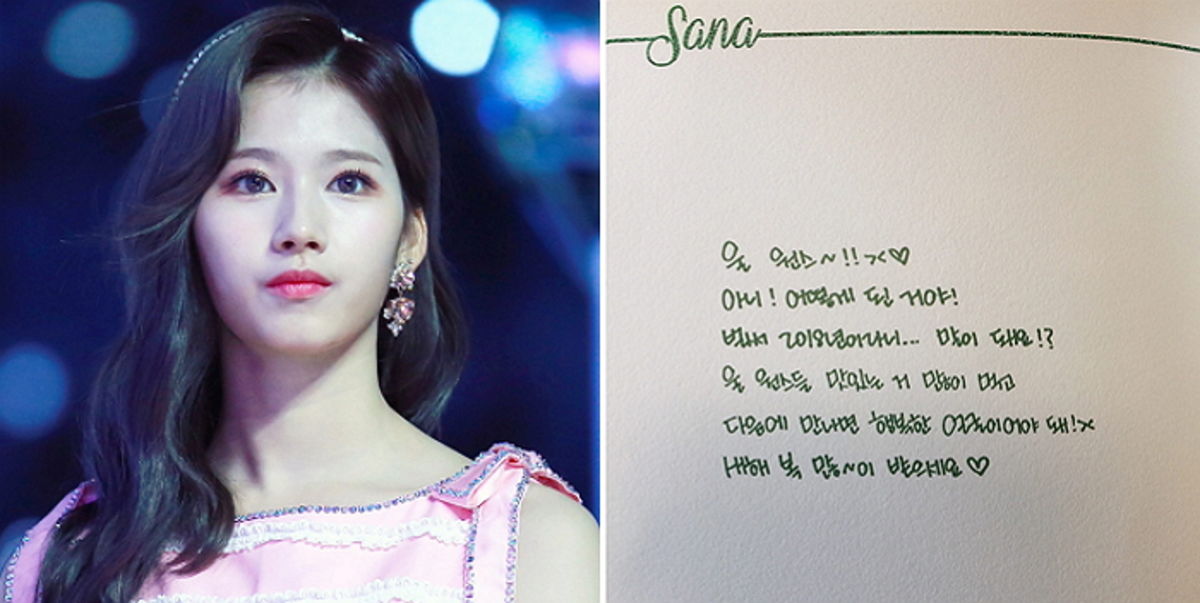 Sana
울 원스~!!><♡
아니! 어떻게 된 거야!
벌써 2018년이라니... 말이 돼요!?
울 원스들 맛있는 거 많이 먹고
다음에 만나면 행복한 얼굴이어야 돼!><
새해 복 많~이 받으세요♡